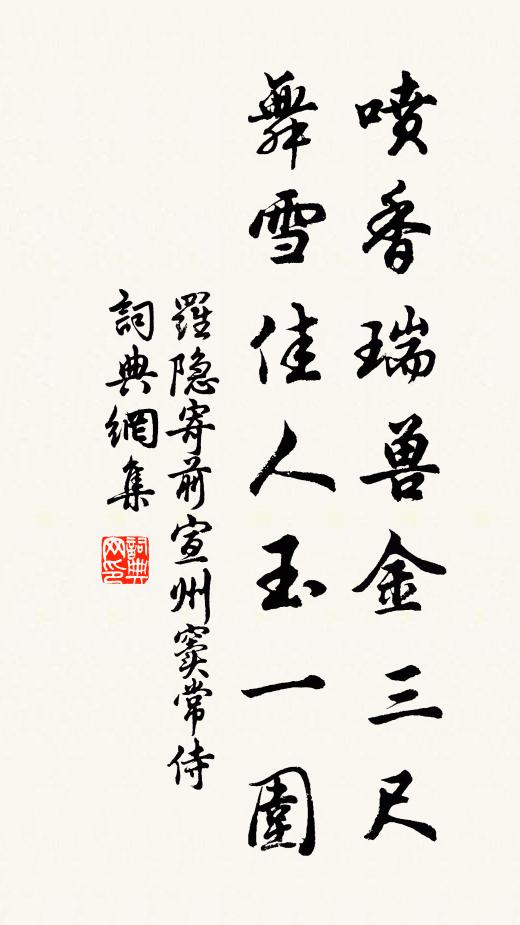 噴香瑞兽金三尺
舞雪佳人玉一圍
羅隐寄前宣州窦常侍
詞典網集
詞典網印